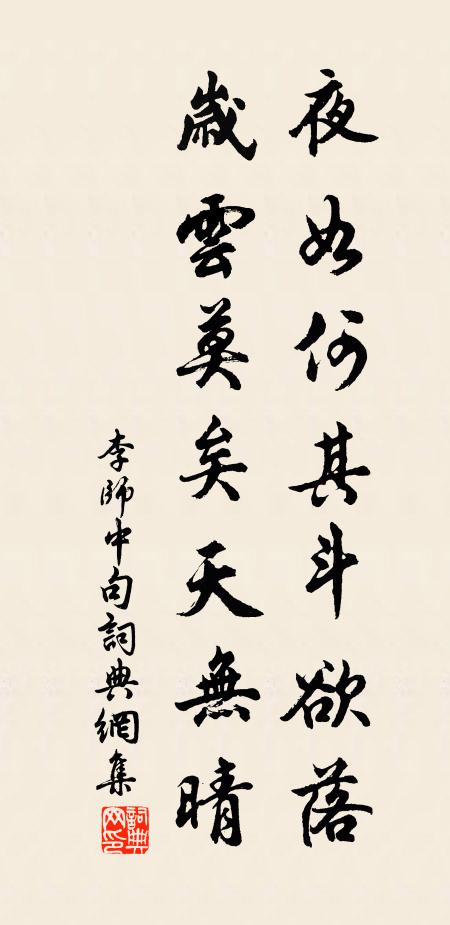 夜如何其斗欲落
歲雲莫矣天無晴
李師中句詞典網集
詞典網印